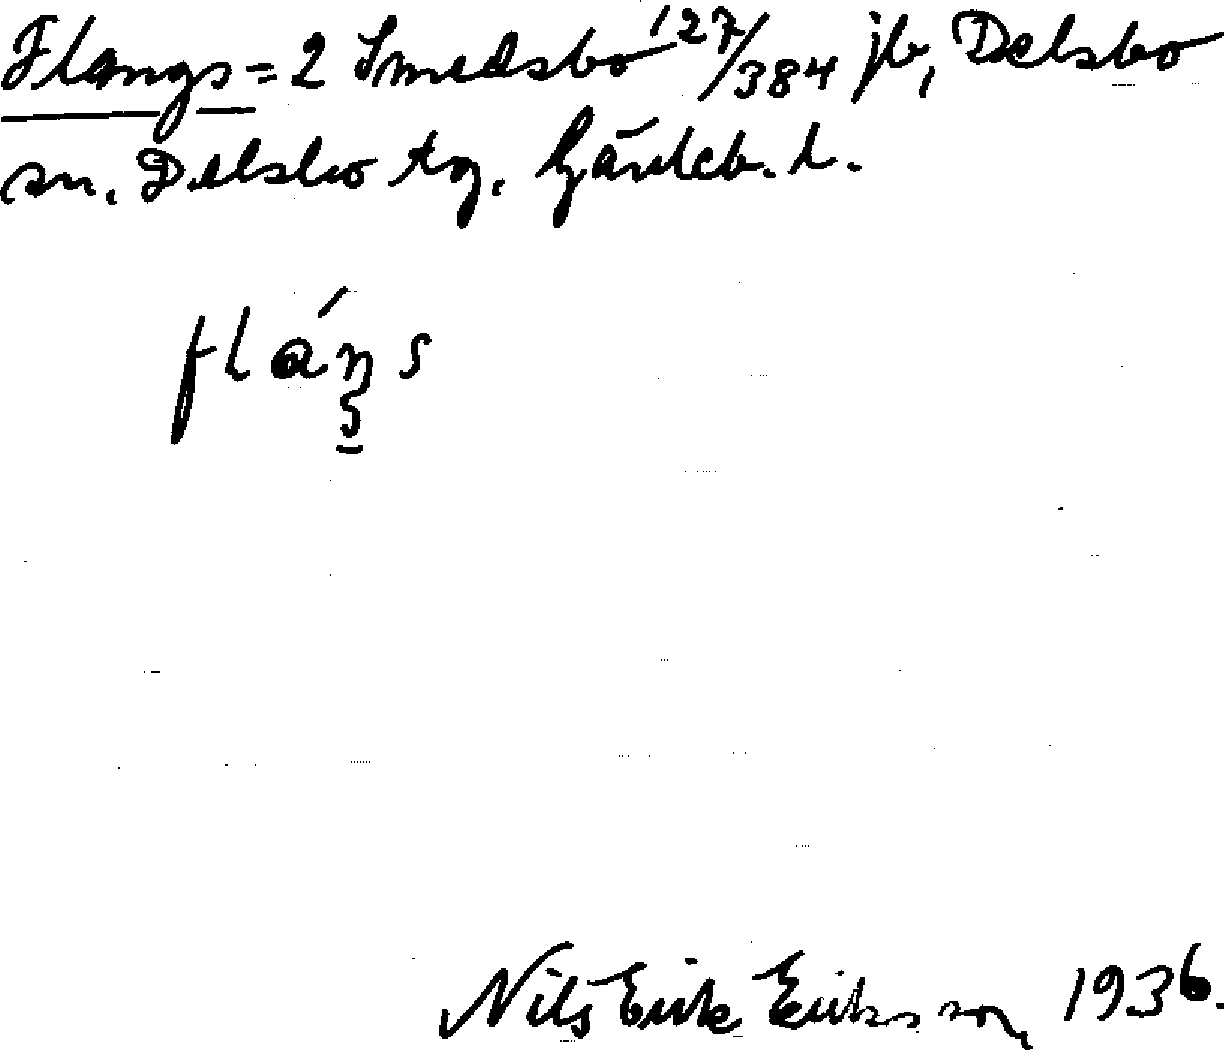 Flangs = 2 Smedsbo 127/384 jb, Delsbo
sn. Delsbo tg. Gävleb. l.
Nils Erik Eriksson, 1936.